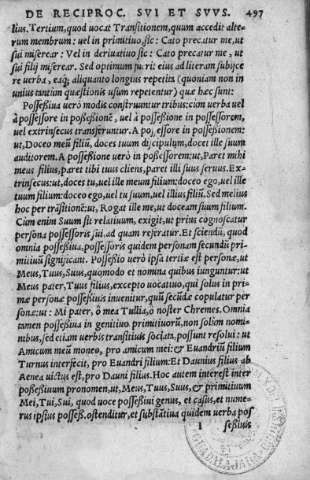 DE RECIPROC. SVI ET SVVS. 497
lius. Tertium, quod uocat Transitionem, quum accedit alte
rum membrum: uel in primitiuo, sic: Cato precatur me, ut
sui miserear: Vel in deriuatiuo sic: Cato precatur me, ut
sui filij miserear. Sed optimum puto eius ad literam subijce
re uerba, eaq; aliquanto longius repetita (quoniam non in
unius tantùm quæstionis usum repetentur) quæ hæc sunt:
Possessiua uerò modis construuntur tribus: cùm uerba uel
à possessore in possessionē, uel à possessione in possessorem,
uel extrinsecus transferuntur. A possessore in possessionem:
ut, Doceo meū filiū, doces tuum discipulum, docet ille suum
auditorem. A possessione uerò in possessorem: ut, Paret mihi
meus filius, paret tibi tuus cliens, paret illi suus seruus. Ex-
trinsecus: ut, doces tu, uel ille meum filium: doceo ego, uel ille
tuum filium: doceo ego, uel tu suum, uel illius filiū. Sed melius
hoc per trāsitionē: ut, Rogat ille me, ut doceam suum filium.
Cùm enim Suum sit relatiuum, exigit, ut prius cognoscatur
persona possessoris sui, ad quam referatur. Et sciendū, quod
omnia possessiua, possessoris quidem personam secundū pri-
mitiuū significant. Possessio uerò ipsa tertiæ est personæ, ut
Meus, Tuus, Suus, quomodo et nomina quibus iunguntur: ut
Meus pater, Tuus filius, excepto uocatiuo, qui solus in pri-
mæ personæ possessiuis inuenitur, quū secūdæ copulatur per
sonæ: ut: Mi pater, ô mea Tullia, ô noster Chremes. Omnia
tamen possessiua in genitiuo primitiuorū, non solùm nomi-
nibus, sed etiam uerbis transitiuè sociata, possunt resolui: ut
Amicum meū moneo, pro amicum mei: & Euandrū filium
Turnus interfecit, pro Euandri filium: Et Daunius filius ab
Aenea uictus est, pro Dauni filius. Hoc autem interest inter
possessiuum pronomen, ut, Meus, Tuus, Suus, & primitiuum
Mei, Tui, Sui, quod uoce possessiui genus, et casus, et nume-
rus ipsius possess. ostenditur, et substātiua quidem uerba pos
I sessiuis